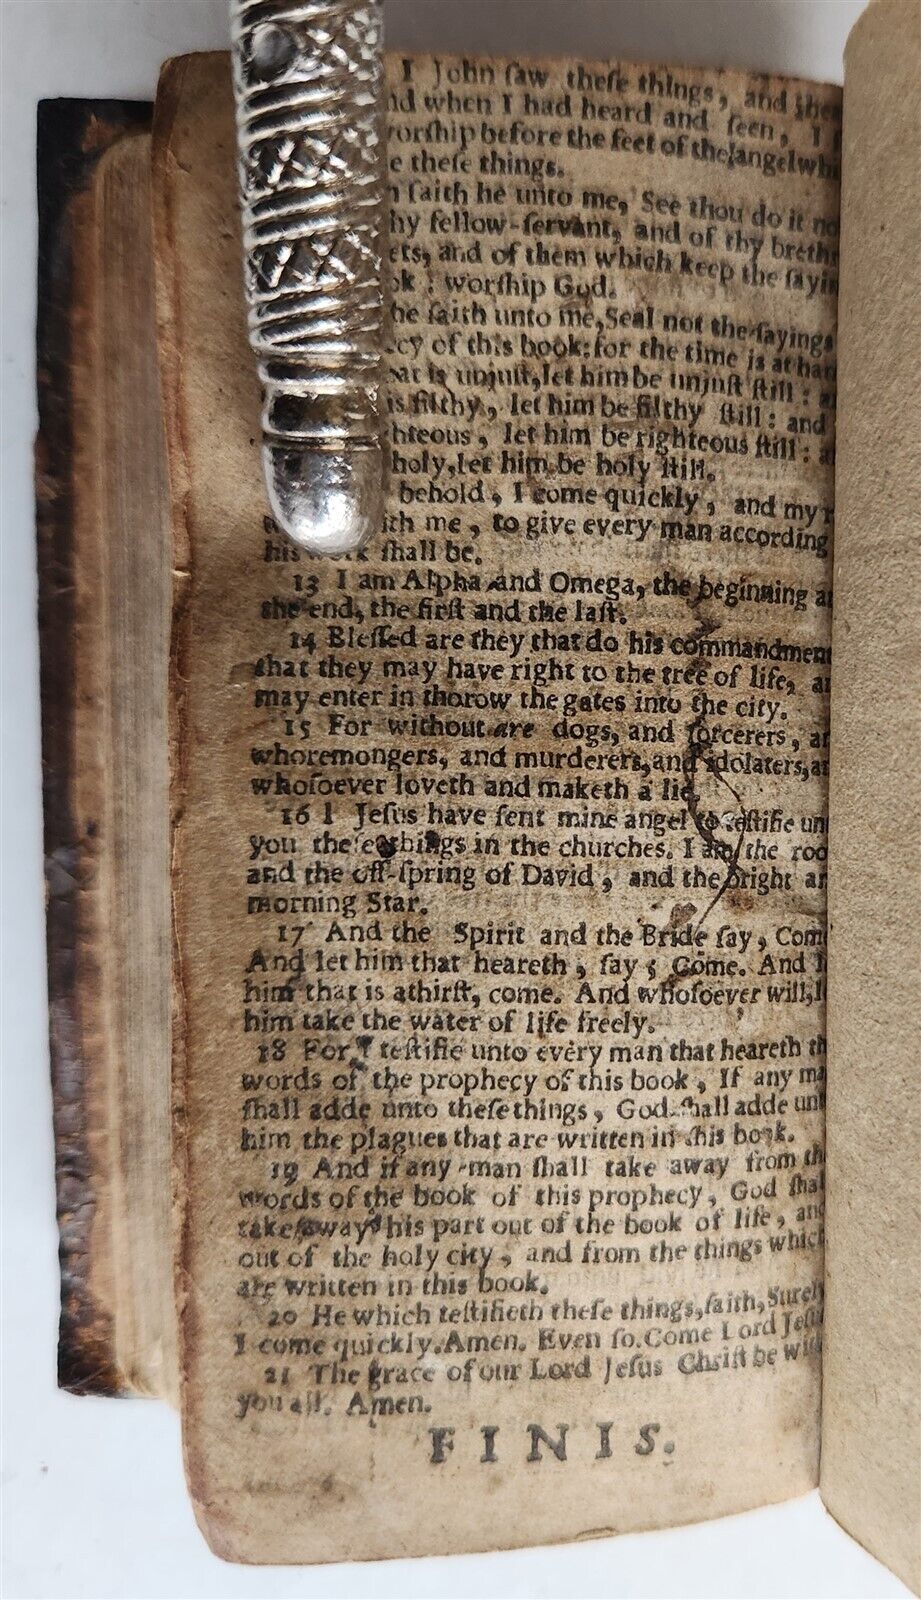 I John ſaw theſe things, and
when I had heard and ſeen, I
before the feet of the angel
theſe things.
ſaith he unto me, See thou do it
fellow-ſervant, and of thy
and of them which keep the
: worſhip God.
he ſaith unto me, Seal not the ſayings
of this book: for the time is at
is unjuſt, let him be unjuſt ſtill:
is filthy, let him be filthy ſtill: and
let him be righteous ſtill:
holy, let him be holy ſtill.
behold, I come quickly, and my
me, to give every man according
his work ſhall be.
13 I am Alpha and Omega, the beginning
the end, the firſt and the laſt.
14 Bleſſed are they that do his
that they may have right to the tree of life,
may enter in thorow the gates into the city.
15 For without are dogs, and ſorcerers,
whoremongers, and murderers, and idolaters,
whoſoever loveth and maketh a lie.
16 I Jeſus have ſent mine angel to teſtifie
you theſe things in the churches. I am the
and the off-ſpring of David, and the bright
morning Star.
17 And the Spirit and the Bride ſay,
And let him that heareth, ſay, Come. And
him that is athirſt, come. And whoſoever will,
him take the water of life freely.
18 For I teſtifie unto every man that heareth
words of the prophecy of this book, If any
ſhall adde unto theſe things, God ſhall adde
him the plagues that are written in this book.
19 And if any man ſhall take away from
words of the book of this prophecy, God
take away his part out of the book of life,
out of the holy city, and from the things
are written in this book.
20 He which teſtifieth theſe things, ſaith, Surely
I come quickly. Amen. Even ſo. Come Lord
21 The grace of our Lord Jeſus Chriſt be
you all. Amen.
FINIS.